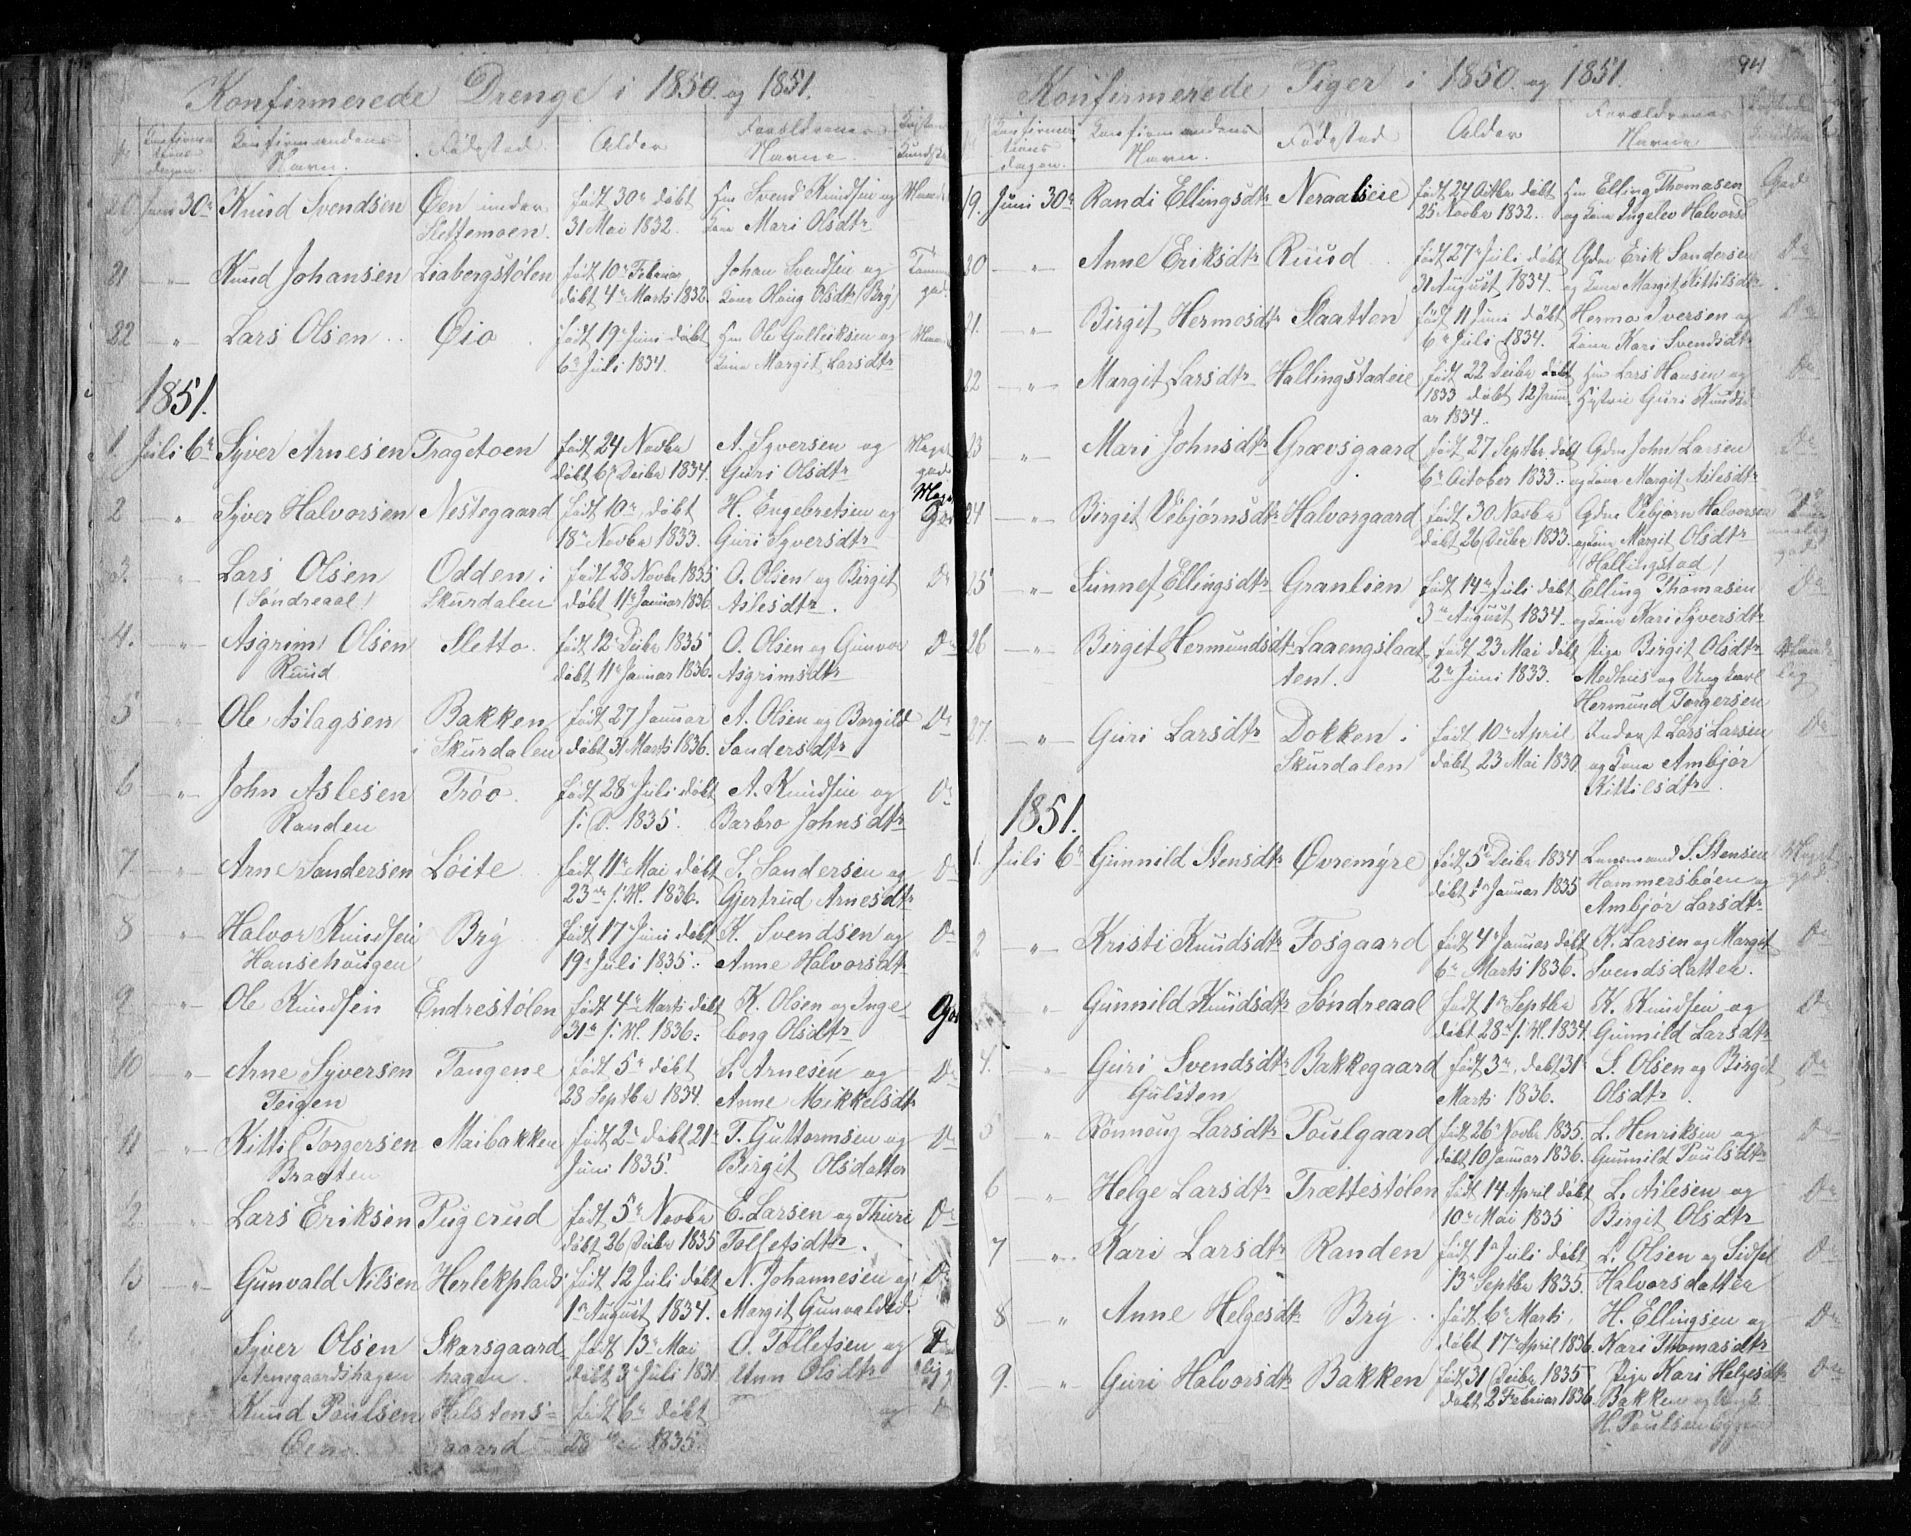 Konfirmerede Drenge i 1850 og 1851.
No Konfirma-
tions
dagen. Konfirmandens
Navn. Fødested. Alder Forældrenes
Navne.
20 Juni 30te Knud Svendsen Øen under født 30te døbt Hm Svend Knudsen og
Slettemoen. 31 Mai 1832. Kone Mari Olsdtr
21 " Knud Johansen Liabergstølen født 10de Februar Johan Svendsen og
døbt 4de Marts 1832. Kone Olaug Olsdtr (Bry)
22 " Lars Olsen Øio født 19de Juni døbt Hm Ole Gulleiksen og
6te Juli 1834. Kone Margit Larsdtr
1851.
1. Juli 6te Syver Arnesen Tragetoen født 24 Novbr A. Syversen og Meget
døbt 6te Decbr 1834. Guri Olsdtr god
2 " Syver Halvorsen Nestegaard født 10de, døbt H. Engebretsen og
18de Novbr 1833. Guri Syversdtr
3. " Lars Olsen Odden i født 28 Novbr 1835 O. Olsen og Birgit Do
(Søndreaal) Skurdalen døbt 11te Januar 1836. Aslesdtr.
4. " Asgrim Olsen Sletto. født 12te Decbr 1835 O. Olsen og Gunvor Do
Ruud døbt 11te Januar 1836. Asgrimsdtr
5 " Ole Aslagsen Bakken født 27 Januar A. Olsen og Borgild Do
i Skurdalen døbt 31 Marts 1836. Sandersdtr
6 " John Aslesen Trøo. født 28 Juli døbt A. Knudsen og Do
Randen s. D. 1835. Barbro Johnsdtr
7 " Arne Sandersen Løite født 11te Mai døbt S. Sandersen og Do
23de s. M. 1836. Gjertrud Arnesdtr
8 " Halvor Knudsen Bry født 17 Juni døbt K. Svendsen og Do
Hansehaugen 19de Juli 1835. Anne Halvorsdtr
9 " Ole Knudsen Endrestølen født 4de Marts døbt K. Olsen og Inge-
31te s. M. 1836. borg Olsdtr
10 " Arne Syversen Tangene født 5te døbt S. Arnesen og Do
Teigen 28 Septbr 1834. Anne Mikkelsdtr
11 " Kittil Torgersen Maibakken født 2de døbt 21de T. Guttormsen og Do
Braaten Juni 1835. Birgit Olsdatter
12. " Lars Eriksen Pugerud født 5te Novbr E. Larsen og Thuri Do
døbt 26 Decbr 1835 Tollefsdtr.
13 " Gunvald Nilsen Herlekplads født 12 Juli døbt N. Johannesen og Do
1te August 1834. Margit Gunvaldsd
Syver Olsen Skarsgaard- født 13de Mai O. Tollefsen og
hagen døbt 3de Juli 1831 Unn Olsdtr
Knud Paulsen Helstens- født 6te døbt og
Øen gaard 1835.
Konfirmerede Piger i 1850 og 1851. 94
Konfirma-
tions
dagen. Konfirmandens
Navn. Fødested Alder Forældrenes
Navne
19. Juni 30te Randi Ellingsdtr Neraalseie født 24 Octbr døbt Hm Elling Thomasen God
25 Novbr 1832. og Kone Ingelev Halvorsd
20 " Anne Eriksdtr Ruud født 27de Juli døbt Gdm Erik Sandersen Do
31 August 1834. og Kone Margit Kittilsdtr
21. " Birgit Hermosdtr Slaatten født 11 Juni døbt Hermo Iversen og Do
6te Juli 1834. Kone Kari Svendsdtr
22 " Margit Larsdtr Hallingstadeie født 22 Decbr døbt Hm Lars Hansen og Do
1833 døbt 12 Janu- Hustru Guri Knudsd
ar 1834.
23 " Mari Johnsdtr Grævsgaard født 27 Septbr døbt Gdm John Larsen Do
6te October 1833. og Kone Margit Aslesdtr
24 " Birgit Vebjørnsdtr Halvorgaard født 30 Novbr Gdm Vebjørn Halvorsen
døbt 26 Decbr 1833. og Kone Margit Olsdtr
(Hallingstad)
25 " Sunnef Ellingsdtr Granlien født 14de Juli døbt Elling Thomasen Do
3de August 1834. og Kone Kari Syversdtr
26 " Birgit Hermundsdtr Laaengslaat- født 23 Mai døbt Pige Birgit Olsdtr
ten. 2de Juni 1833. Medhus og Ungkarl
Hermund Torgersen
27. " Guri Larsdtr Dokken i født 10de April Inderst Lars Larsen Do
Skurdalen døbt 23 Mai 1830 og Kone Ambjør
Kittilsdtr.
1851.
1. Juli 6te Gunnild Stensdtr Øvremyre født 5te Decbr 1834 Lensmand S. Stensen Meget
døbt 1te Januar 1835 Hammersbøen og god
Ambjør Larsdtr
2 " Kristi Knudsdtr Fosgaard født 4de Januar døbt K. Larsen og Margit Do
6te Marts 1836. Svendsdatter.
" Gunnild Knudsdtr Søndreaal født 1te Septbr K. Knudsen og Do
døbt 28de s. M. 1834. Gunnild Larsdtr
4. " Guri Svendsdtr Bakkegaard født 3de, døbt 31te S. Olsen og Birgit Do
Gulsten Marts 1836. Olsdtr.
5 " Rønnoug Larsdtr Poulgaard født 26te Novbr 1835. L. Henriksen og Do
døbt 10 Januar 1836. Gunnild Poulsdtr
6 " Helge Larsdtr Trættestølen født 14 April døbt L. Aslesen og Do
10de Mai 1835 Birgit Olsdtr
7 " Kari Larsdtr Randen født 1te Juli døbt L. Olsen og Sidsel Do
13de Septbr 1835. Halvorsdatter
8 " Anne Helgesdtr Bry født 6te Marts, H. Ellingsen og Do
døbt 17de April 1836. Kari Thomasdtr
9. " Guri Halvorsdtr Bakken født 31 Decbr 1835 Pige Kari Helgesdtr Do
døbt 2 Februar 1836. Bakken og Ungk.
H. Poulsen Eggen